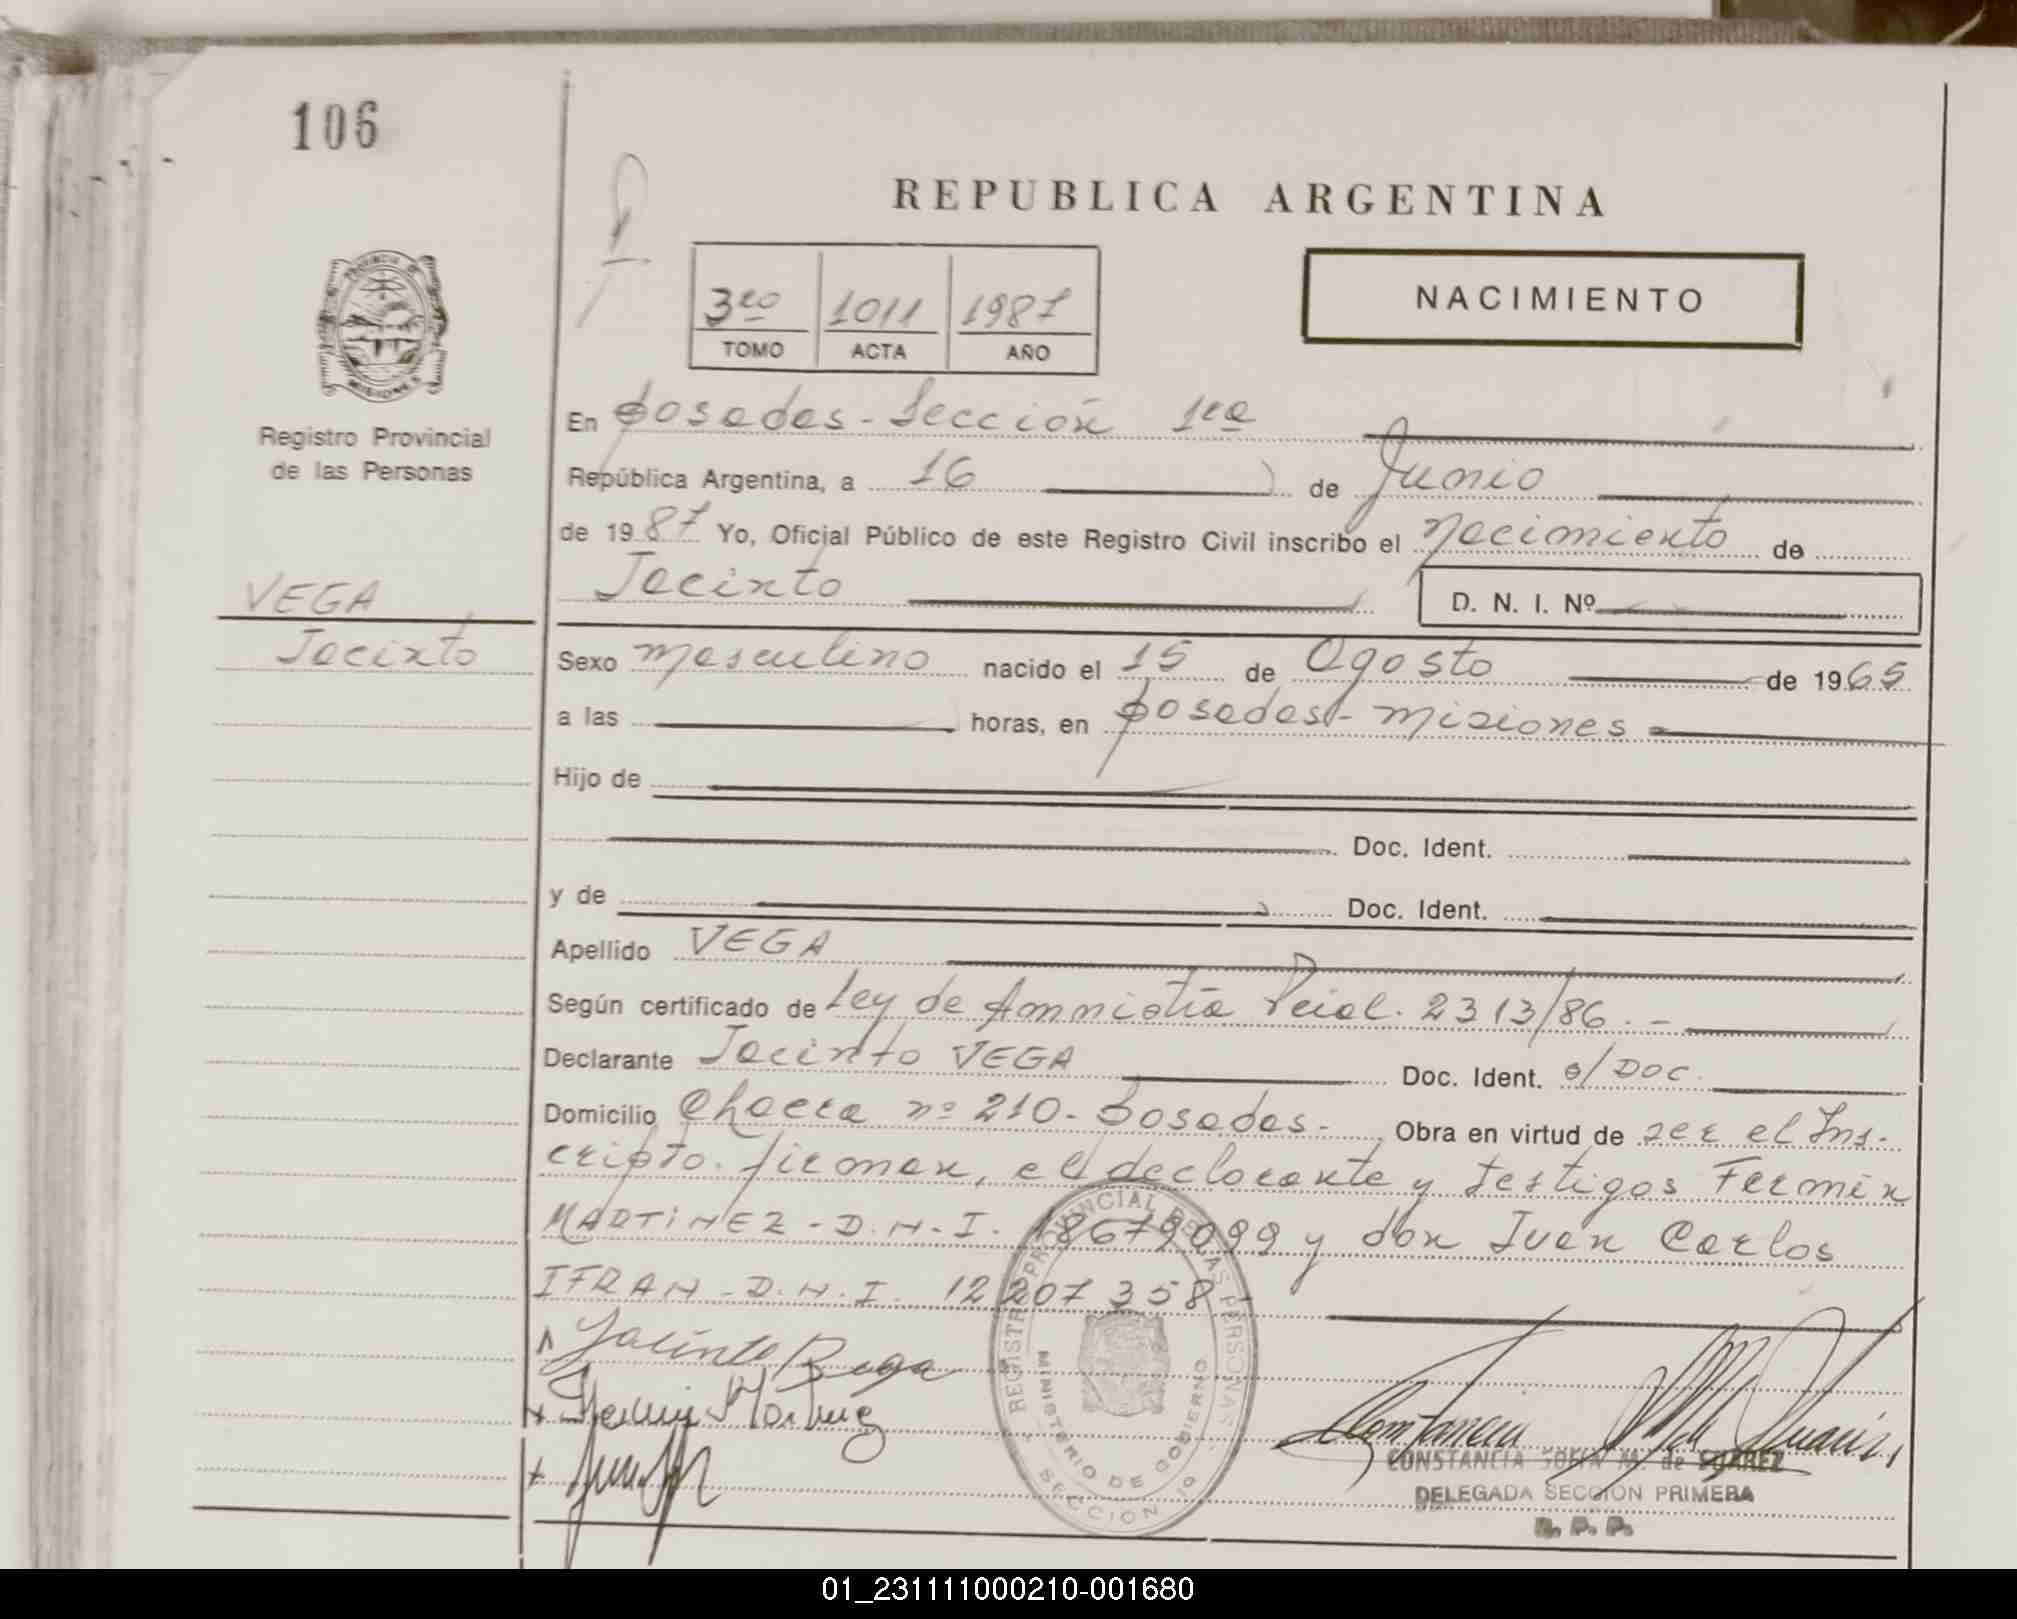 106
REPUBLICA ARGENTINA
PROVINCIA DE MISIONES
3ro 1011 1987
TOMO ACTA AÑO
NACIMIENTO
Registro Provincial
de las Personas
En Posadas - Sección 1ra
República Argentina, a 16 de Junio
de 1987 Yo, Oficial Público de este Registro Civil inscribo el Nacimiento de
Jacinto D. N. I. Nº
VEGA
Jacinto
Sexo masculino nacido el 15 de Agosto de 1965
a las horas, en Posadas - Misiones
Hijo de
Doc. Ident.
y de Doc. Ident.
Apellido VEGA
Según certificado de Ley de Amnistía Pcial. 2313/86.-
Declarante Jacinto VEGA Doc. Ident. s/DOC.
Domicilio Chacra nº 210 - Posadas - Obra en virtud de ser el Ins-
cripto. firman, el declarante y testigos Fermín
MARTINEZ - D.N.I. 18679099 y don Juan Carlos
IFRAN - D.N.I. 12207358 -
Jacinto Bega
Fermin Martinez
REGISTRO PROVINCIAL DE LAS PERSONAS
MINISTERIO DE GOBIERNO
SECCION 1º
CONSTANCIA SOFIA M. de SUAREZ
DELEGADA SECCION PRIMERA
R. P. P.
01_231111000210-001680